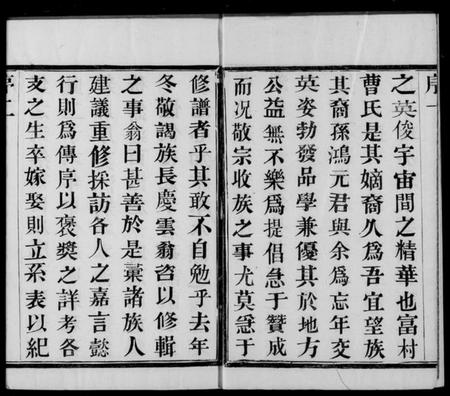 序一
之英俊宇宙間之精華也富村
曹氏是其嫡裔久為吾宜望族
其裔孫鴻元君與余為忘年交
英姿勃發品學兼優其於地方
公益無不樂為提倡急于贊成
而況敬宗收族之事尤莫急于
修譜者乎其敢不自勉乎去年
冬敬謁族長慶雲翁咨以修輯
之事翁曰甚善於是稟諸族人
建議重修採訪各人之嘉言懿
行則為傳序以褒獎之詳考各
支之生卒嫁娶則立系表以紀
序二